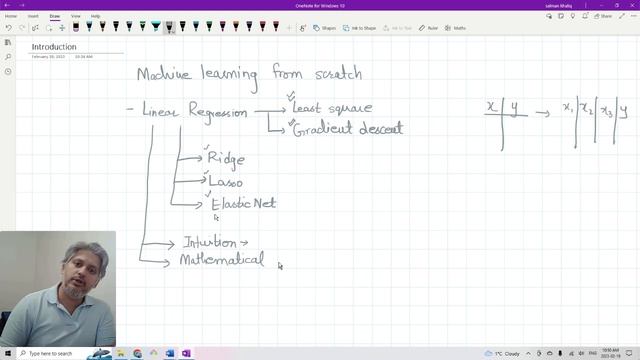 OneNote for Windows 10
salman khaliq
File
Home
Insert
Draw
View
Help
Ink to Shape
Ink to Text
Ruler
Math
Introduction
10:34 AM
Machine learning from scratch
- Linear Regression → Least square
→ Gradient descent
x | y → x₁ | x₂ | x₃ | y
→ Ridge
→ Lasso
→ Elastic Net
→ Intuition →
→ Mathematical
Type here to search
1°C Cloudy
10:50 AM
2023-02-19